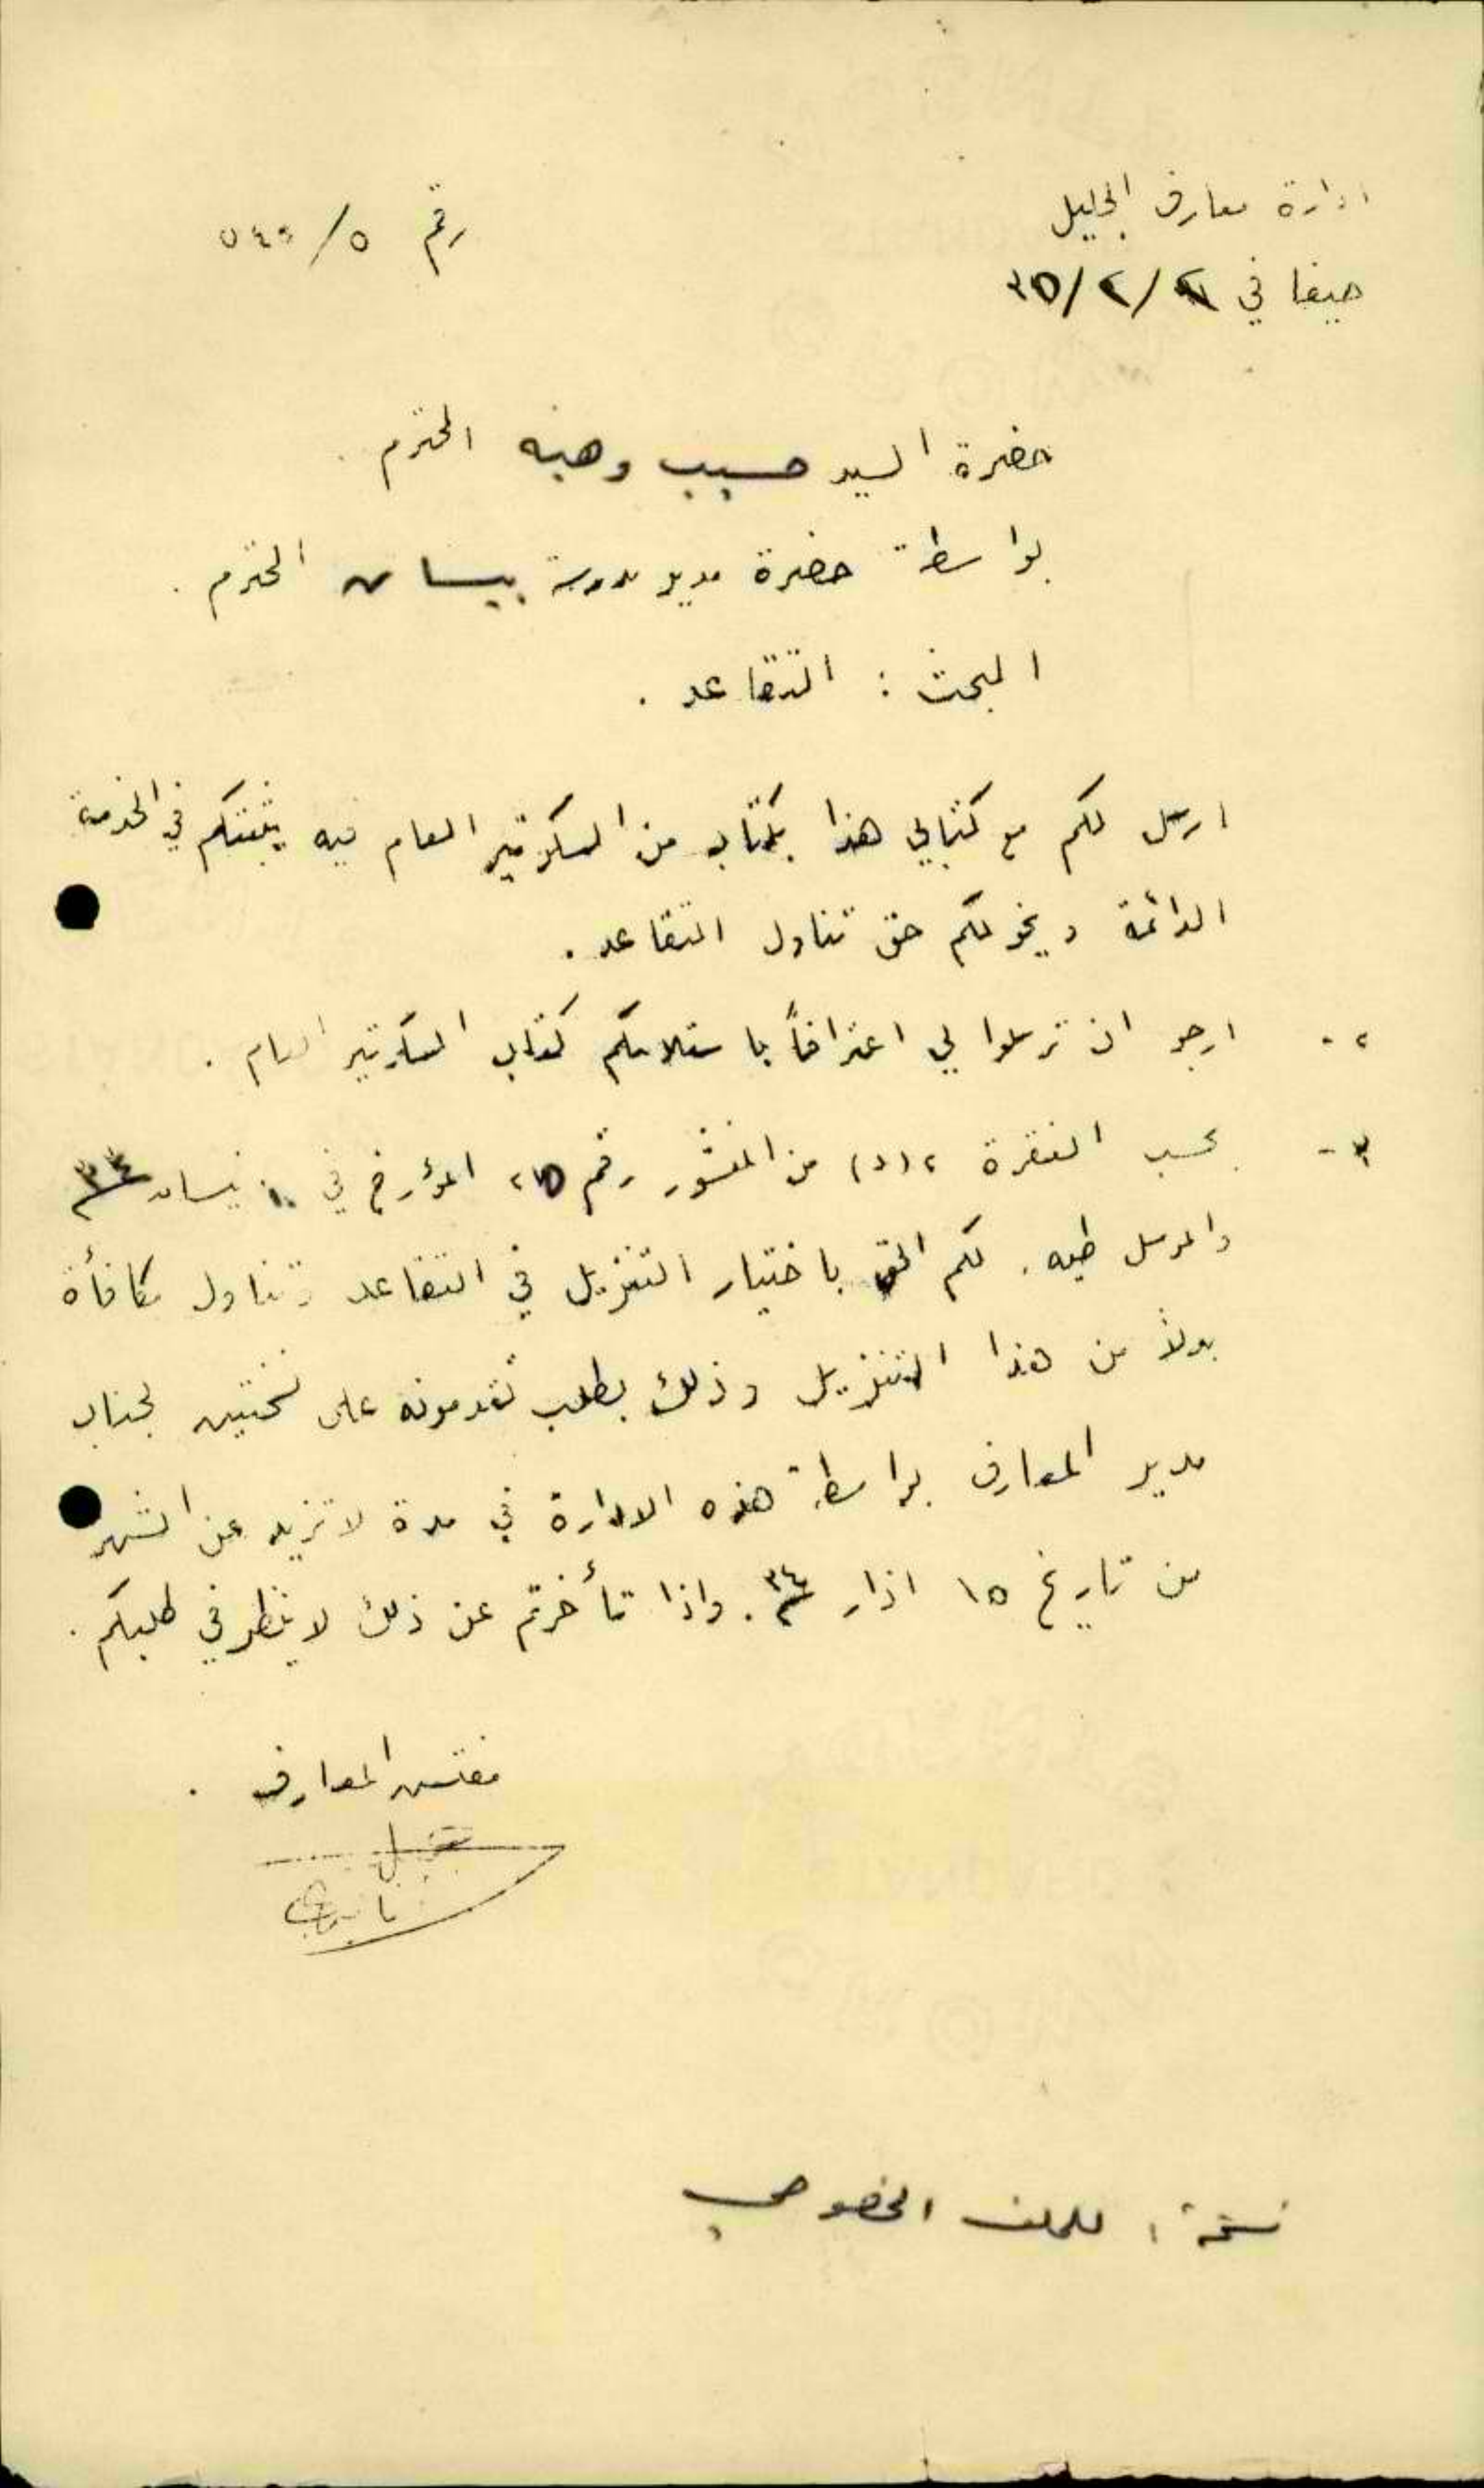 ادارة معارف الجليل
رقم ٥/
حيفا في /٢/٣٥
حضرة السيد حبيب وهبه المحترم
بواسطة حضرة مدير مدرسة بيسان المحترم .
المبحث : التقاعد .
ارسل لكم مع كتابي هذا كتاب من السكرتير العام فيه يثبتكم في الخدمة
الدائمة ويخولكم حق تناول التقاعد .
٢ - ارجو ان ترسلوا لي اعترافاً باستلامكم كتاب السكرتير العام .
٣ - بحسب الفقرة ٢ (د) من المنشور رقم المؤرخ في نيسان
والمرسل طيه . لكم الحق باختيار التنزيل في التقاعد وتناول مكافأة
بدلاً من هذا التنزيل وذلك بطلب تقدمونه على نسختين لجناب
مدير المعارف بواسطة هذه الادارة في مدة لا تزيد عن الشهر
من تاريخ ١٥ اذار ٣٤ . واذا تأخرتم عن ذلك لا ينظر في طلبكم .
مفتش المعارف .
نسخة : للملف الخصوصي